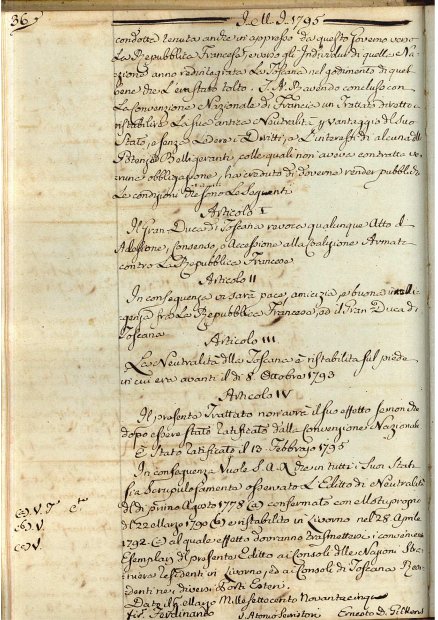 36
I. M. I. 1795
condotta tenuta anche in appresso da questo Governo verso
La Repubblica Francese, e verso gli Individui di quella Na
zione anno redintegrata La Toscana nel godimento di quel
bene che L'era stato tolto. S. A. R. avendo concluso con
La Convenzione Nazionale di Francia un Trattato diretto a
ristabilire La Sua antica Neutralità a vantaggio del Suo
Stato, e senza Ledere i Diritti, o L'interessi di alcuna delle
Potenze Belligeranti, colle quali non aveva contratta ve
runa obbligazione, ha creduto di dovere render pubblich
Le condizioni che sono Le Seguenti
Articolo I
Il Gran Duca di Toscana revoca qualunque Atto d'
Adesione, Consenso, o Accessione alla Coalizione Armata
contro La Repubblica Francese
Articolo II
In conseguenza vi sarà pace, amicizia, e buona intelli
genza fra La Repubblica Francese, ed il Gran Duca di
Toscana
Articolo III
La Neutralità della Toscana è ristabilita sul piede
in cui era avanti il dì 8 Ottobre 1793
Articolo IV
Il presente Trattato non avrà il suo effetto se non che
dopo essere stato ratificato dalla Convenzione Nazionale
È Stato ratificato il 13 Febbrajo 1795
In conseguenza Vuole S. A. R. che in tutti i Suoi Stati
sia Scrupulosamente osservato L'Editto di Neutralità
del dì primo Agosto 1778 (a) confermato con Motuproprio
de' 22 Marzo 1790 (b) e ristabilito in Livorno nel 28 Aprile
1792 (c) al quale effetto dovranno trasmettersi i convenienti
Esemplari del presente Editto ai Consoli delle Nazioni Stra
niere residenti in Livorno, ed ai Consoli di Toscana Resi
denti nei diversi Porti Esteri.
Dato il Marzo Mille Settecento Novantacinque
Fir. Ferdinando V. Antonio Serristori Ernesto D. Gilkens
(a) V. T
(b) V.
(c) V.